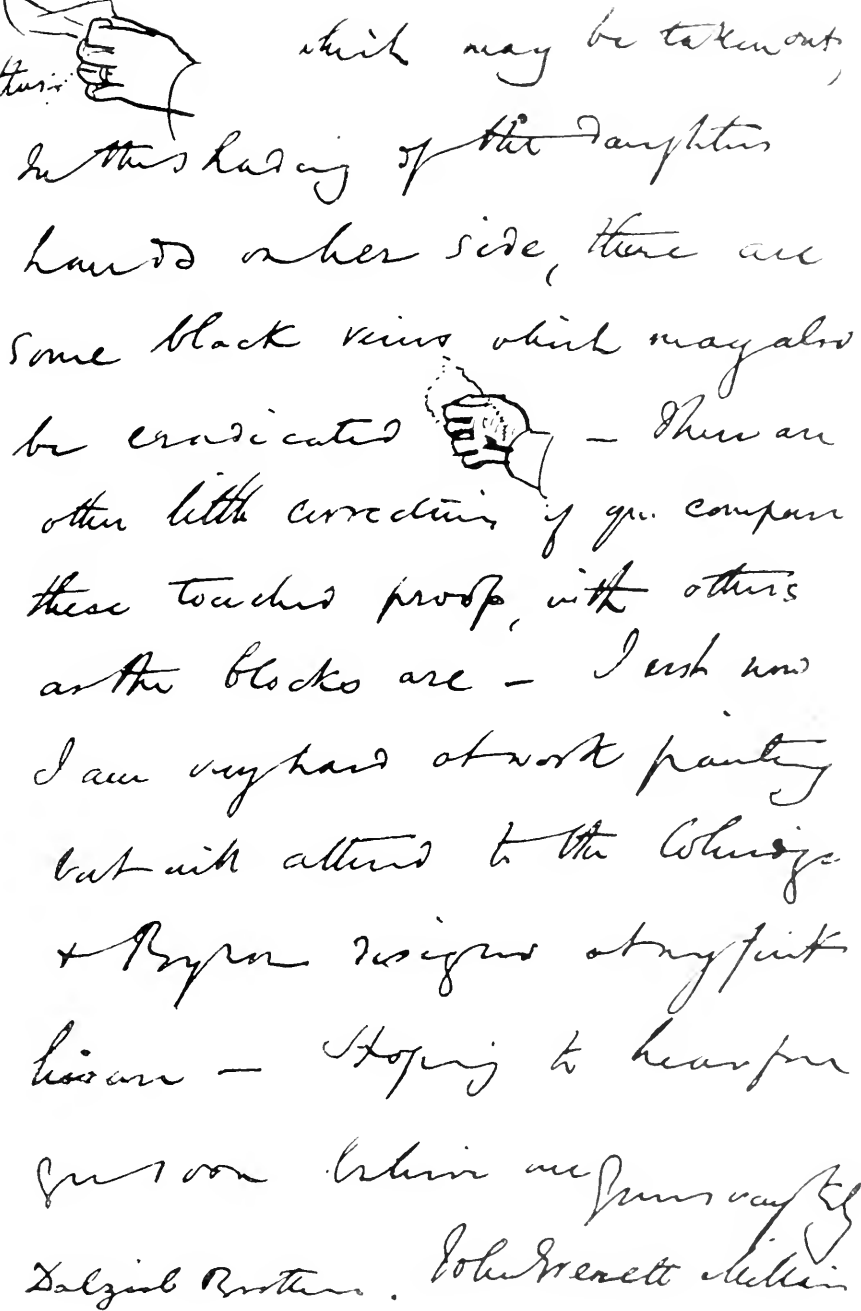 which may be taken out,
thus
In the shading of the daughters
hands on her side, there are
some black veins which may also
be eradicated – There are
other little corrections if you compare
these touched proofs, with others
as the blocks are – Just now
I am very hard at work painting
but will attend to the Coleridge
& Byron designs at my first
leisure – Hoping to hear from
you soon believe me Yours very truly
John Everett Millais
Dalziel Brothers.